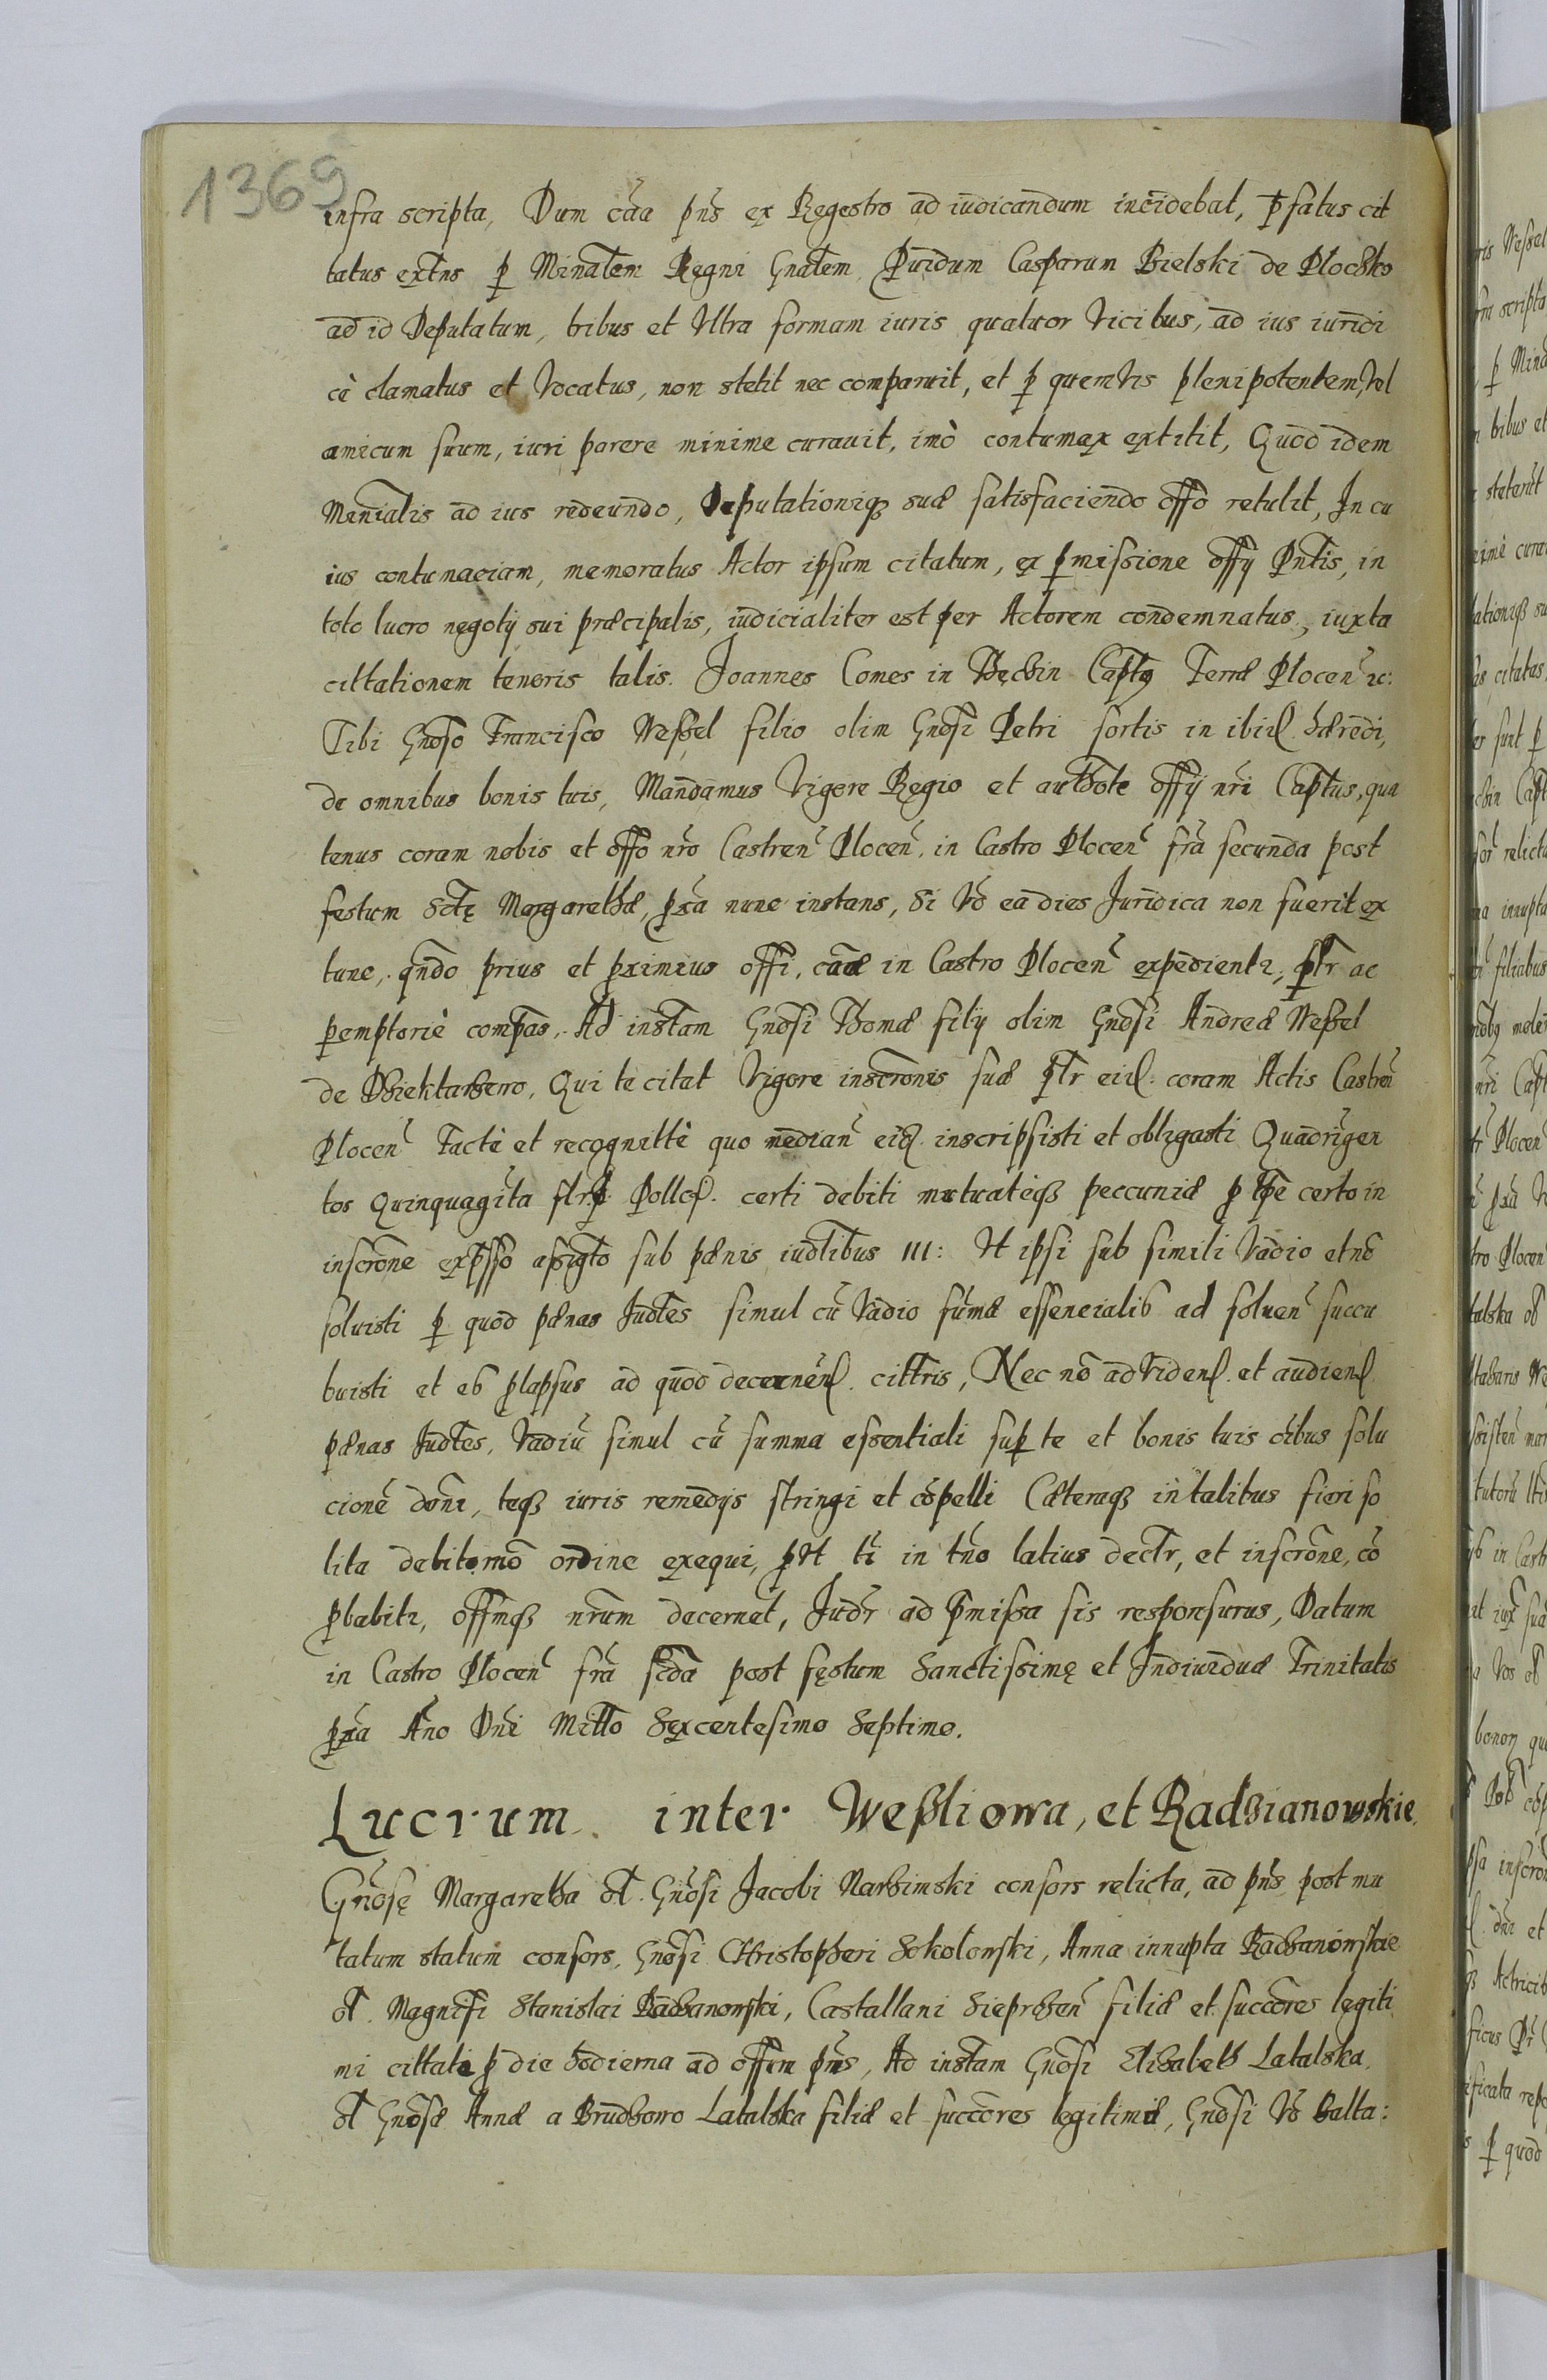 1369
infra scripta, Dum cãa pñs ex Regestro ad iudicandum incidebat, p̃fatus cit
tatus extñs p Minalem Regni Gnalem Puidum Casparum Bielski de Plochko
ad id Deputatum, tribus et Vltra formam iuris quatuor Vicibus, ad ius iuridi
cè clamatus et Vocatus, non stetit nec comparuit, et p quemvis plenipotentem, vel
amicum suum, iuri parere minime curauit, imò contumax extitit, Quod idem
Minialis ad ius redeundo, Deputationiq3 suæ satisfaciendo offo retulit, In cu
ius contumaciam, memoratus Actor ipsum citatum, ex pmissione offy Pntis, in
toto lucro negotij sui præcipalis, iudicialiter est per Actorem condemnatus, iuxta
cittationem tenoris talis. Joannes Comes in Tęchin Captus Terræ Plocen̄ 2c:
Tibi Gnoso Francisco Weßel filio olim Gnosi Petri sortis in ibid hæredi,
de omnibus bonis tuis, Mandamus Vigore Regio et authote offy nri Captus, qua
tenus coram nobis et offo nro Castren̄ Plocen̄, in Castro Plocen̄ fra secunda post
festum Sctę Margarethæ, pxa nunc instans, Si Vo ea dies Juridica non fuerit ex
tunc, qndo prius et pximius offi, cauæ in Castro Plocen̄ expedientr, ptr ac
pemptoriè compas, Ad instam Gnosi Thomæ filij olim Gnosi Andreæ Weßel
de Dziektarzewo, Qui te citat Vigore inscronis suæ ptr eid. coram Actis Castren̄
Plocen̄ Factè et recognittè quo median̄ eid inscripsisti et obligasti Quadringen
tos Quinquaginta flr. p Pollof. certi debiti mutuateq3 peccuniæ p tpe certo in
inscrone expsso assigto sub pænis iudlibus III: Vt ipsi sub simili Vadio et nō
soluisti p quod pænas Judles simul cū Vadio sumæ essencialis ad soluen̄ succu
buisti et es plapsus ad quod decernen̄d. cittris, Nec nō ad Viden̄d. et audien̄d.
pænas Judles, Vadiū simul cū summa essentiali sup te et bonis tuis oibus solu
cionē doni, teq3 iuris remedijs stringi et cōpelli Cæteraq3 in talibus fieri so
lita debitomō ordine exequi, p Vt ti in tno latius dectr, et inscrone, cō
pbabitr, offmq3 nrum decernet, Judr ad pmissa sis responsurus, Datum
in Castro Plocen̄ fra scda post fęstum Sanctissimę et Indiuiduæ Trinitatis
pxa Ano Dni Millo Sexcentesimo Septimo.
Lucrum inter Weßliowa, et Radzianowskie.
Gnosę Margaretha ol. Gnosi Jacobi Narzimski consors relicta, ad pñs post mu
tatum statum consors, Gnosi Christopheri Sokołowski, Anna innupta Radzanowskie
ol. Magnifi Stanislai Radzanowski, Castallani Sieprzen̄ filiæ et succores legiti
mi cittati p die hodierna ad offm pñs, Ad instam Gnosi Elizabeth Latalska
ol Gnosæ Annæ a Brudzowo Latalska filiæ et succores legitimæ, Gnosi Vo Balta: